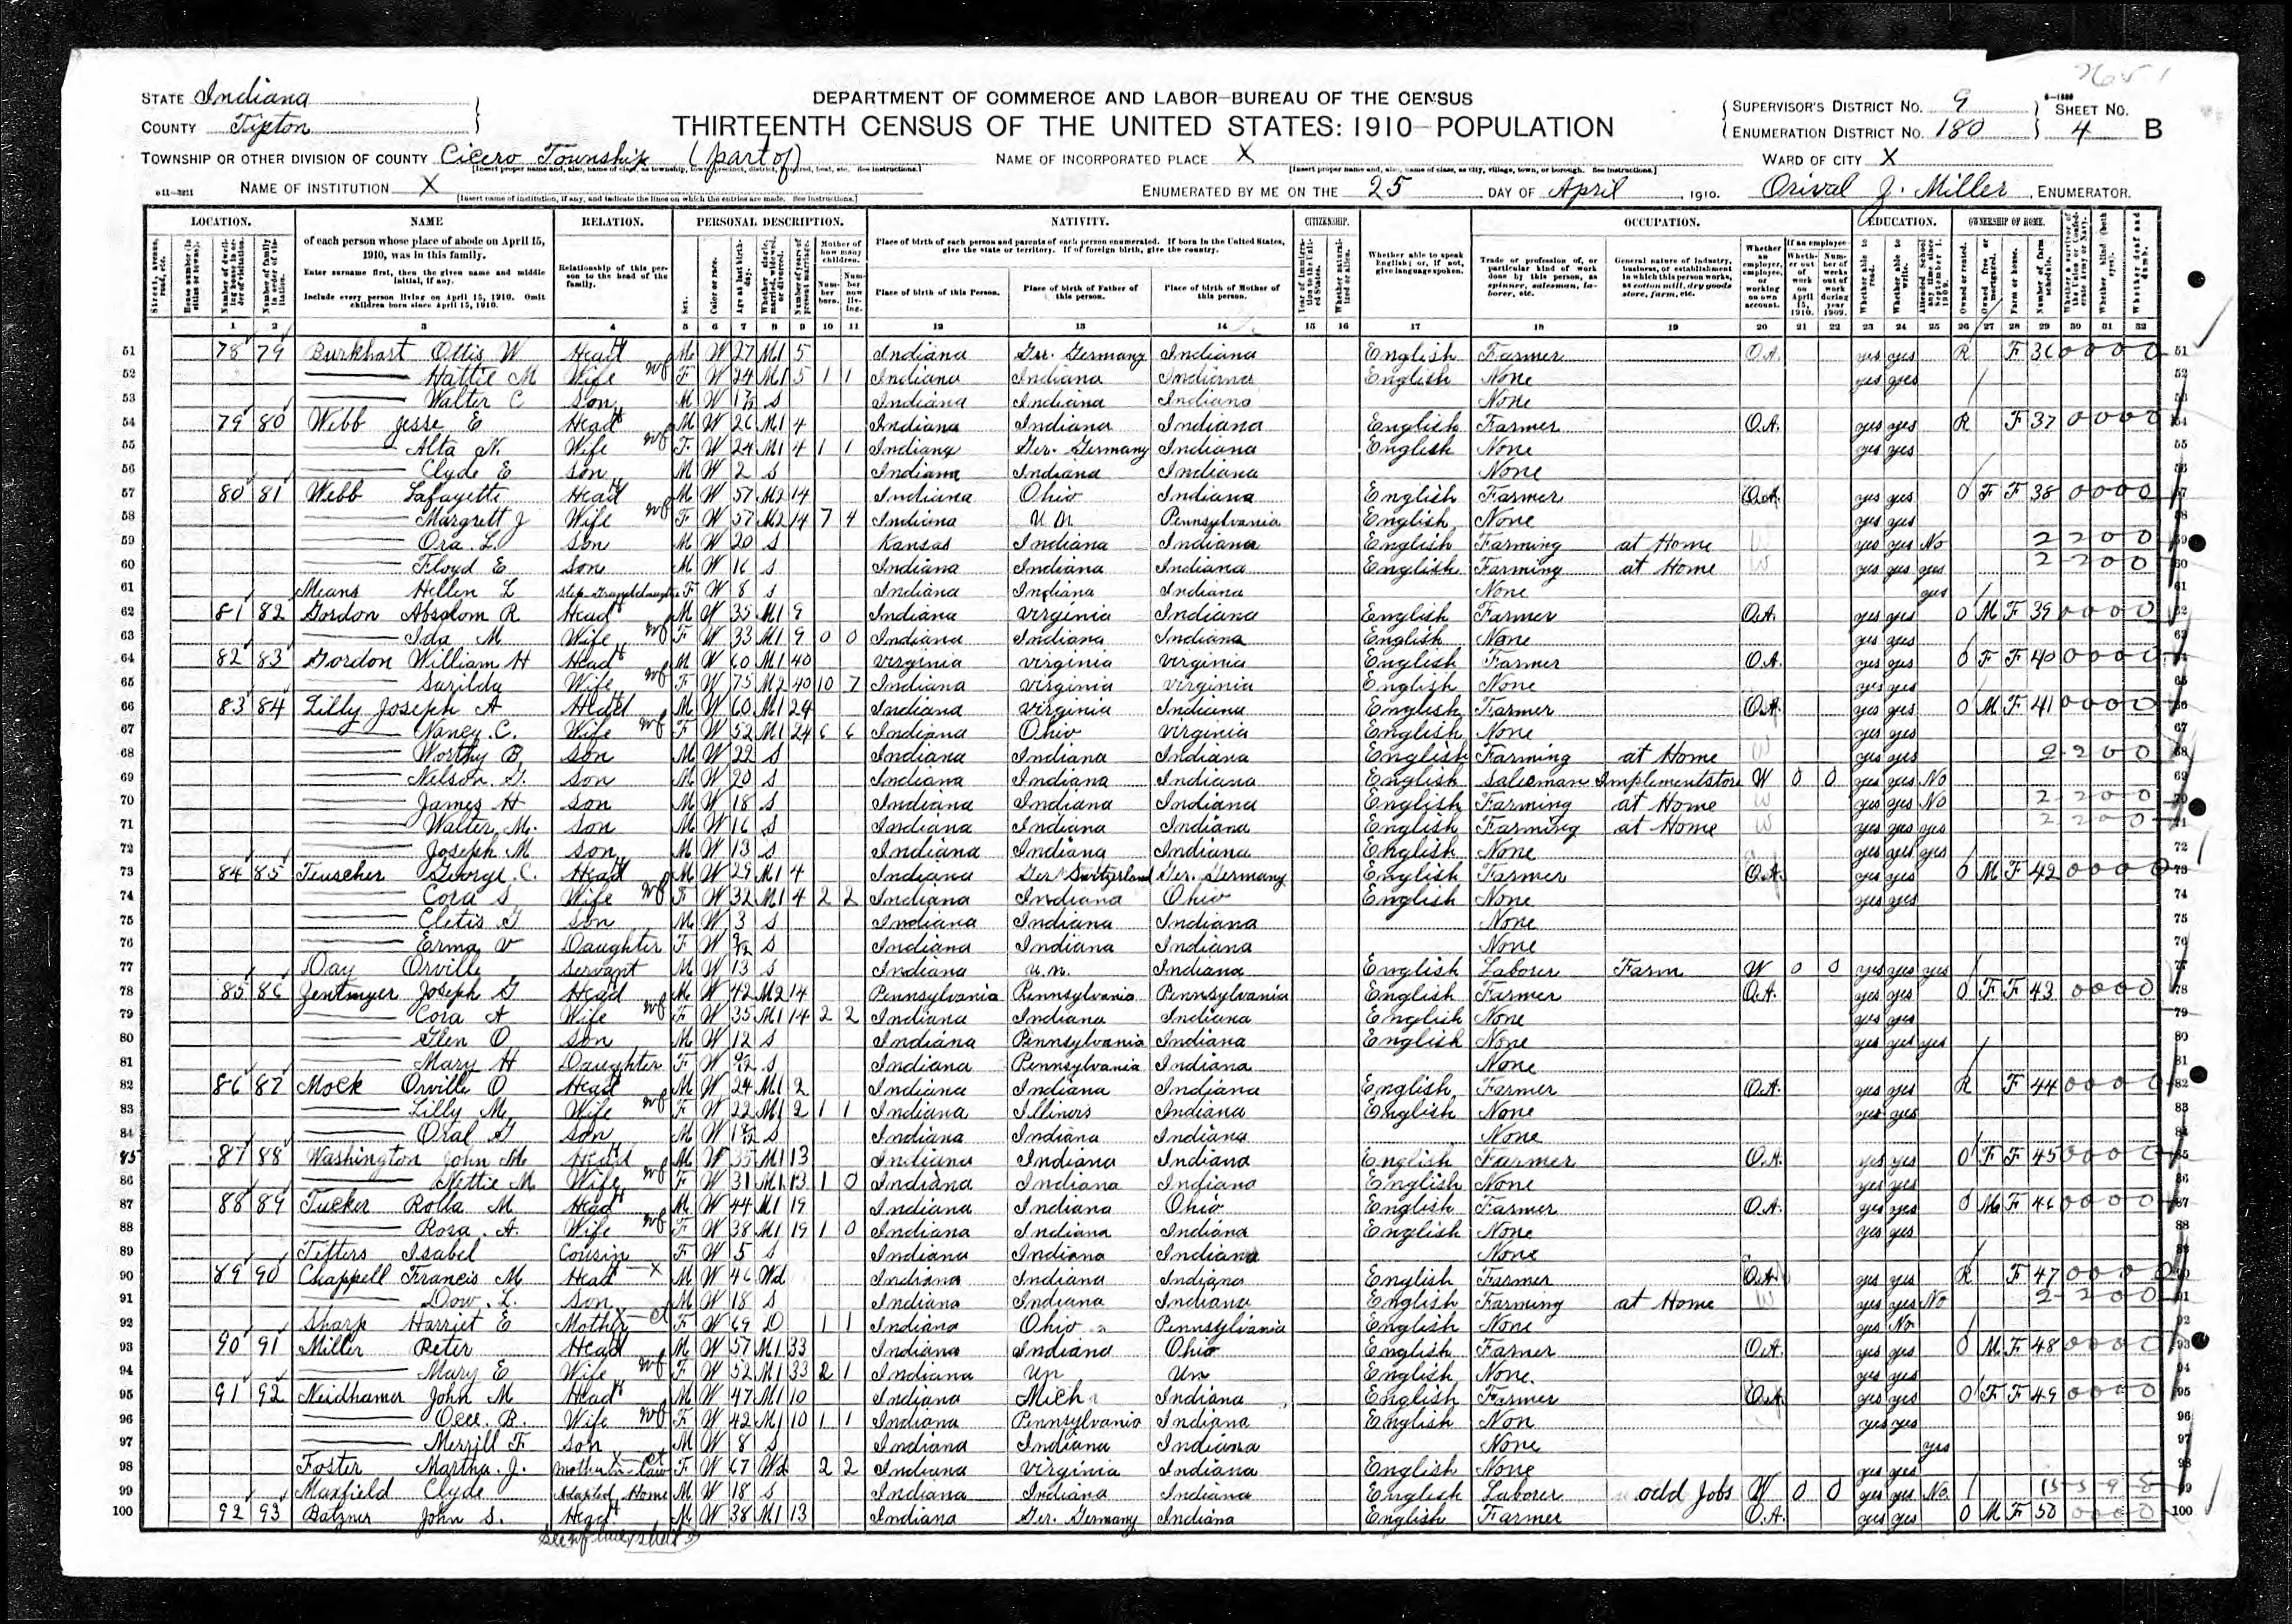 STATE Indiana
COUNTY Tipton
DEPARTMENT OF COMMERCE AND LABOR—BUREAU OF THE CENSUS
THIRTEENTH CENSUS OF THE UNITED STATES: 1910—POPULATION
SUPERVISOR'S DISTRICT No. 9
ENUMERATION DISTRICT No. 180
SHEET No. 4 B
TOWNSHIP OR OTHER DIVISION OF COUNTY Cicero Township (part of)
NAME OF INCORPORATED PLACE X
WARD OF CITY X
NAME OF INSTITUTION X
ENUMERATED BY ME ON THE 25 DAY OF April, 1910. Orival J. Miller, ENUMERATOR.
LOCATION. NAME RELATION. PERSONAL DESCRIPTION. NATIVITY. CITIZENSHIP. OCCUPATION. EDUCATION. OWNERSHIP OF HOME.
of each person whose place of abode on April 15, 1910, was in this family.
Enter surname first, then the given name and middle initial, if any.
Include every person living on April 15, 1910. Omit children born since April 15, 1910.
Relationship of this person to the head of the family.
Place of birth of each person and parents of each person enumerated. If born in the United States, give the state or territory. If of foreign birth, give the country.
Place of birth of this Person. Place of birth of Father of this person. Place of birth of Mother of this person.
Whether able to speak English; or, if not, give language spoken.
1 2 3 4 5 6 7 8 9 10 11 12 13 14 15 16 17 18 19 20 21 22 23 24 25 26 27 28 29 30 31 32
51 78 79 Burkhart Ottis W Head M W 27 M1 5 Indiana Ger. Germany Indiana English Farmer O.A. yes yes R F 36
52 Hattie M Wife F W 24 M1 5 1 1 Indiana Indiana Indiana English None yes yes
53 Walter C Son M W S Indiana Indiana Indiana None
54 79 80 Webb Jesse E Head M W 26 M1 4 Indiana Indiana Indiana English Farmer O.A. yes yes R F 37
55 Alta N. Wife F W 24 M1 4 1 1 Indiana Ger. Germany Indiana English None yes yes
56 Clyde E Son M W 2 S Indiana Indiana Indiana None
57 80 81 Webb Lafayette Head M W 57 M2 14 Indiana Ohio Indiana English Farmer O.A. yes yes O F F 38
58 Margrett J Wife F W 57 M2 14 7 4 Indiana U.N. Pennsylvania English None yes yes
59 Ora L. Son M W 20 S Kansas Indiana Indiana English Farming at Home W yes yes No
60 Floyd E Son M W 16 S Indiana Indiana Indiana English Farming at Home W yes yes yes
61 Means Hellen L Step Granddaughter F W 8 S Indiana Indiana Indiana None yes
62 81 82 Gordon Absolom R Head M W 35 M1 9 Indiana Virginia Indiana English Farmer O.A. yes yes O M F 39
63 Ida M Wife F W 33 M1 9 0 0 Indiana Indiana Indiana English None yes yes
64 82 83 Gordon William H Head M W 60 M1 40 Virginia Virginia Virginia English Farmer O.A. yes yes O F F 40
65 Surilda Wife F W 75 M2 40 10 7 Indiana Virginia Virginia English None yes yes
66 83 84 Lilly Joseph A Head M W 60 M1 24 Indiana Virginia Indiana English Farmer O.A. yes yes O M F 41
67 Nancy C. Wife F W 52 M1 24 6 6 Indiana Ohio Virginia English None yes yes
68 Worthy B. Son M W 22 S Indiana Indiana Indiana English Farming at Home W yes yes
69 Nelson G. Son M W 20 S Indiana Indiana Indiana English Salesman Implement store W 0 0 yes yes No
70 James H Son M W 18 S Indiana Indiana Indiana English Farming at Home W yes yes No
71 Walter M. Son M W 16 S Indiana Indiana Indiana English Farming at Home W yes yes yes
72 Joseph M Son M W 13 S Indiana Indiana Indiana English None yes yes yes
73 84 85 Teuscher George C. Head M W 29 M1 4 Indiana Ger Switzerland Ger. Germany English Farmer O.A. yes yes O M F 42
74 Cora S Wife F W 32 M1 4 2 2 Indiana Indiana Ohio English None yes yes
75 Cletis G Son M W 3 S Indiana Indiana Indiana None
76 Erma V Daughter F W S Indiana Indiana Indiana None
77 Day Orville Servant M W 13 S Indiana U.N. Indiana English Laborer Farm W 0 0 yes yes yes
78 85 86 Zentmyer Joseph G Head M W 42 M2 14 Pennsylvania Pennsylvania Pennsylvania English Farmer O.A. yes yes O F F 43
79 Cora A Wife F W 35 M1 14 2 2 Indiana Indiana Indiana English None yes yes
80 Glen O Son M W 12 S Indiana Pennsylvania Indiana English None yes yes yes
81 Mary H Daughter F W S Indiana Pennsylvania Indiana None
82 86 87 Mock Orville O Head M W 24 M1 2 Indiana Indiana Indiana English Farmer O.A. yes yes R F 44
83 Lilly M. Wife F W 22 M1 2 1 1 Indiana Illinois Indiana English None yes yes
84 Oral G Son M W S Indiana Indiana Indiana None
85 87 88 Washington John M. Head M W 35 M1 13 Indiana Indiana Indiana English Farmer O.A. yes yes O F F 45
86 Nettie M Wife F W 31 M1 13 1 0 Indiana Indiana Indiana English None yes yes
87 88 89 Tucker Rolla M Head M W 44 M1 19 Indiana Indiana Ohio English Farmer O.A. yes yes O M F 46
88 Rosa A. Wife F W 38 M1 19 1 0 Indiana Indiana Indiana English None yes yes
89 Titters Isabel Cousin F W 5 S Indiana Indiana Indiana None
90 89 90 Chappell Francis M Head X M W 46 Wd Indiana Indiana Indiana English Farmer O.A. yes yes R F 47
91 Dow L. Son M W 18 S Indiana Indiana Indiana English Farming at Home W yes yes No
92 Sharp Harriet E Mother F W 69 D 1 1 Indiana Ohio Pennsylvania English None yes No
93 90 91 Miller Peter Head M W 57 M1 33 Indiana Indiana Ohio English Farmer O.A. yes yes O M F 48
94 Mary E Wife F W 52 M1 33 2 1 Indiana Un Un English None. yes yes
95 91 92 Neidhamer John M Head M W 47 M1 10 Indiana Mich Indiana English Farmer O.A. yes yes O F F 49
96 B. Wife F W 42 M1 10 1 1 Indiana Pennsylvania Indiana English Non yes yes
97 Merrill F Son M W 8 S Indiana Indiana Indiana None yes
98 Foster Martha J. Mother-in-Law F W 67 Wd 2 2 Indiana Virginia Indiana English None yes yes
99 Maxfield Clyde Adopted Home M W 18 S Indiana Indiana Indiana English Laborer odd Jobs W 0 0 yes yes No
100 92 93 Batzner John S. Head M W 38 M1 13 Indiana Ger. Germany Indiana English Farmer O.A. yes yes O M F 50